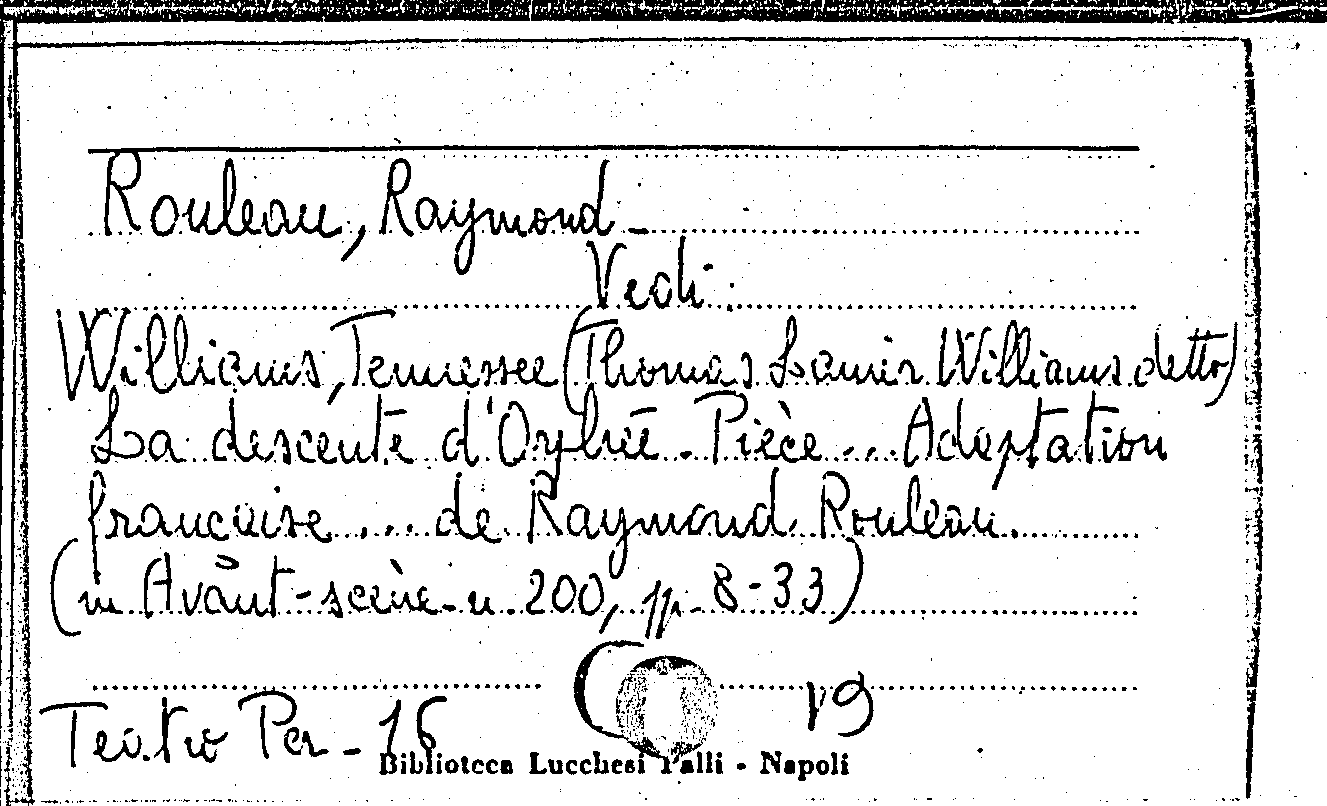 Rouleau, Raymond -
Vedi:
Williams, Tennessee (Thomas Lanier Williams detto)
La descente d'Orphée - Pièce... Adaptation
française... de Raymond Rouleau.
(in Avant-scène - n. 200, pp. 8-33)
19
Teatro Per - 16
Biblioteca Lucchesi Palli - Napoli